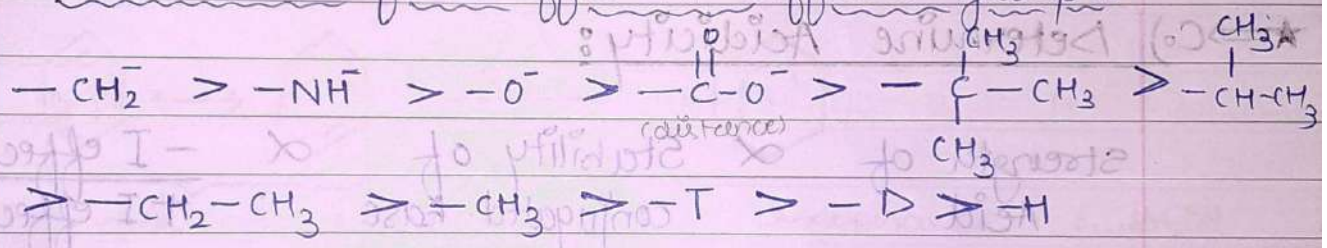 — CH₂⁻ > —NH⁻ > —O⁻ > —C(=O)—O⁻ > —C(CH₃)(CH₃)—CH₃ > —CH(CH₃)—CH₃
(distance)
> —CH₂—CH₃ > —CH₃ > —T > —D > —H